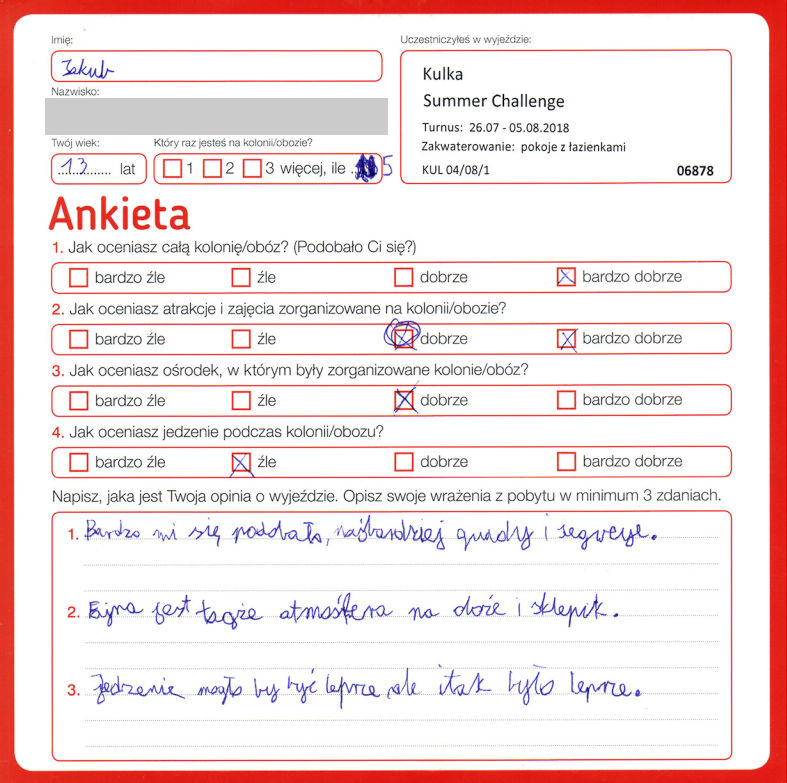 Imię:
Jakub
Nazwisko:
Twój wiek:
13 lat
Który raz jesteś na kolonii/obozie?
1 2 3 więcej, ile 5
Uczestniczyłeś w wyjeździe:
Kulka
Summer Challenge
Turnus: 26.07 - 05.08.2018
Zakwaterowanie: pokoje z łazienkami
KUL 04/08/1 06878
Ankieta
1. Jak oceniasz całą kolonię/obóz? (Podobało Ci się?)
bardzo źle źle dobrze bardzo dobrze
2. Jak oceniasz atrakcje i zajęcia zorganizowane na kolonii/obozie?
bardzo źle źle dobrze bardzo dobrze
3. Jak oceniasz ośrodek, w którym były zorganizowane kolonie/obóz?
bardzo źle źle dobrze bardzo dobrze
4. Jak oceniasz jedzenie podczas kolonii/obozu?
bardzo źle źle dobrze bardzo dobrze
Napisz, jaka jest Twoja opinia o wyjeździe. Opisz swoje wrażenia z pobytu w minimum 3 zdaniach.
1. Bardzo mi się podobało, najbardziej quady i segweye.
2. Fajna jest także atmosfera na obozie i sklepik.
3. Jedzenie mogło by być leprze, ale i tak było leprze.